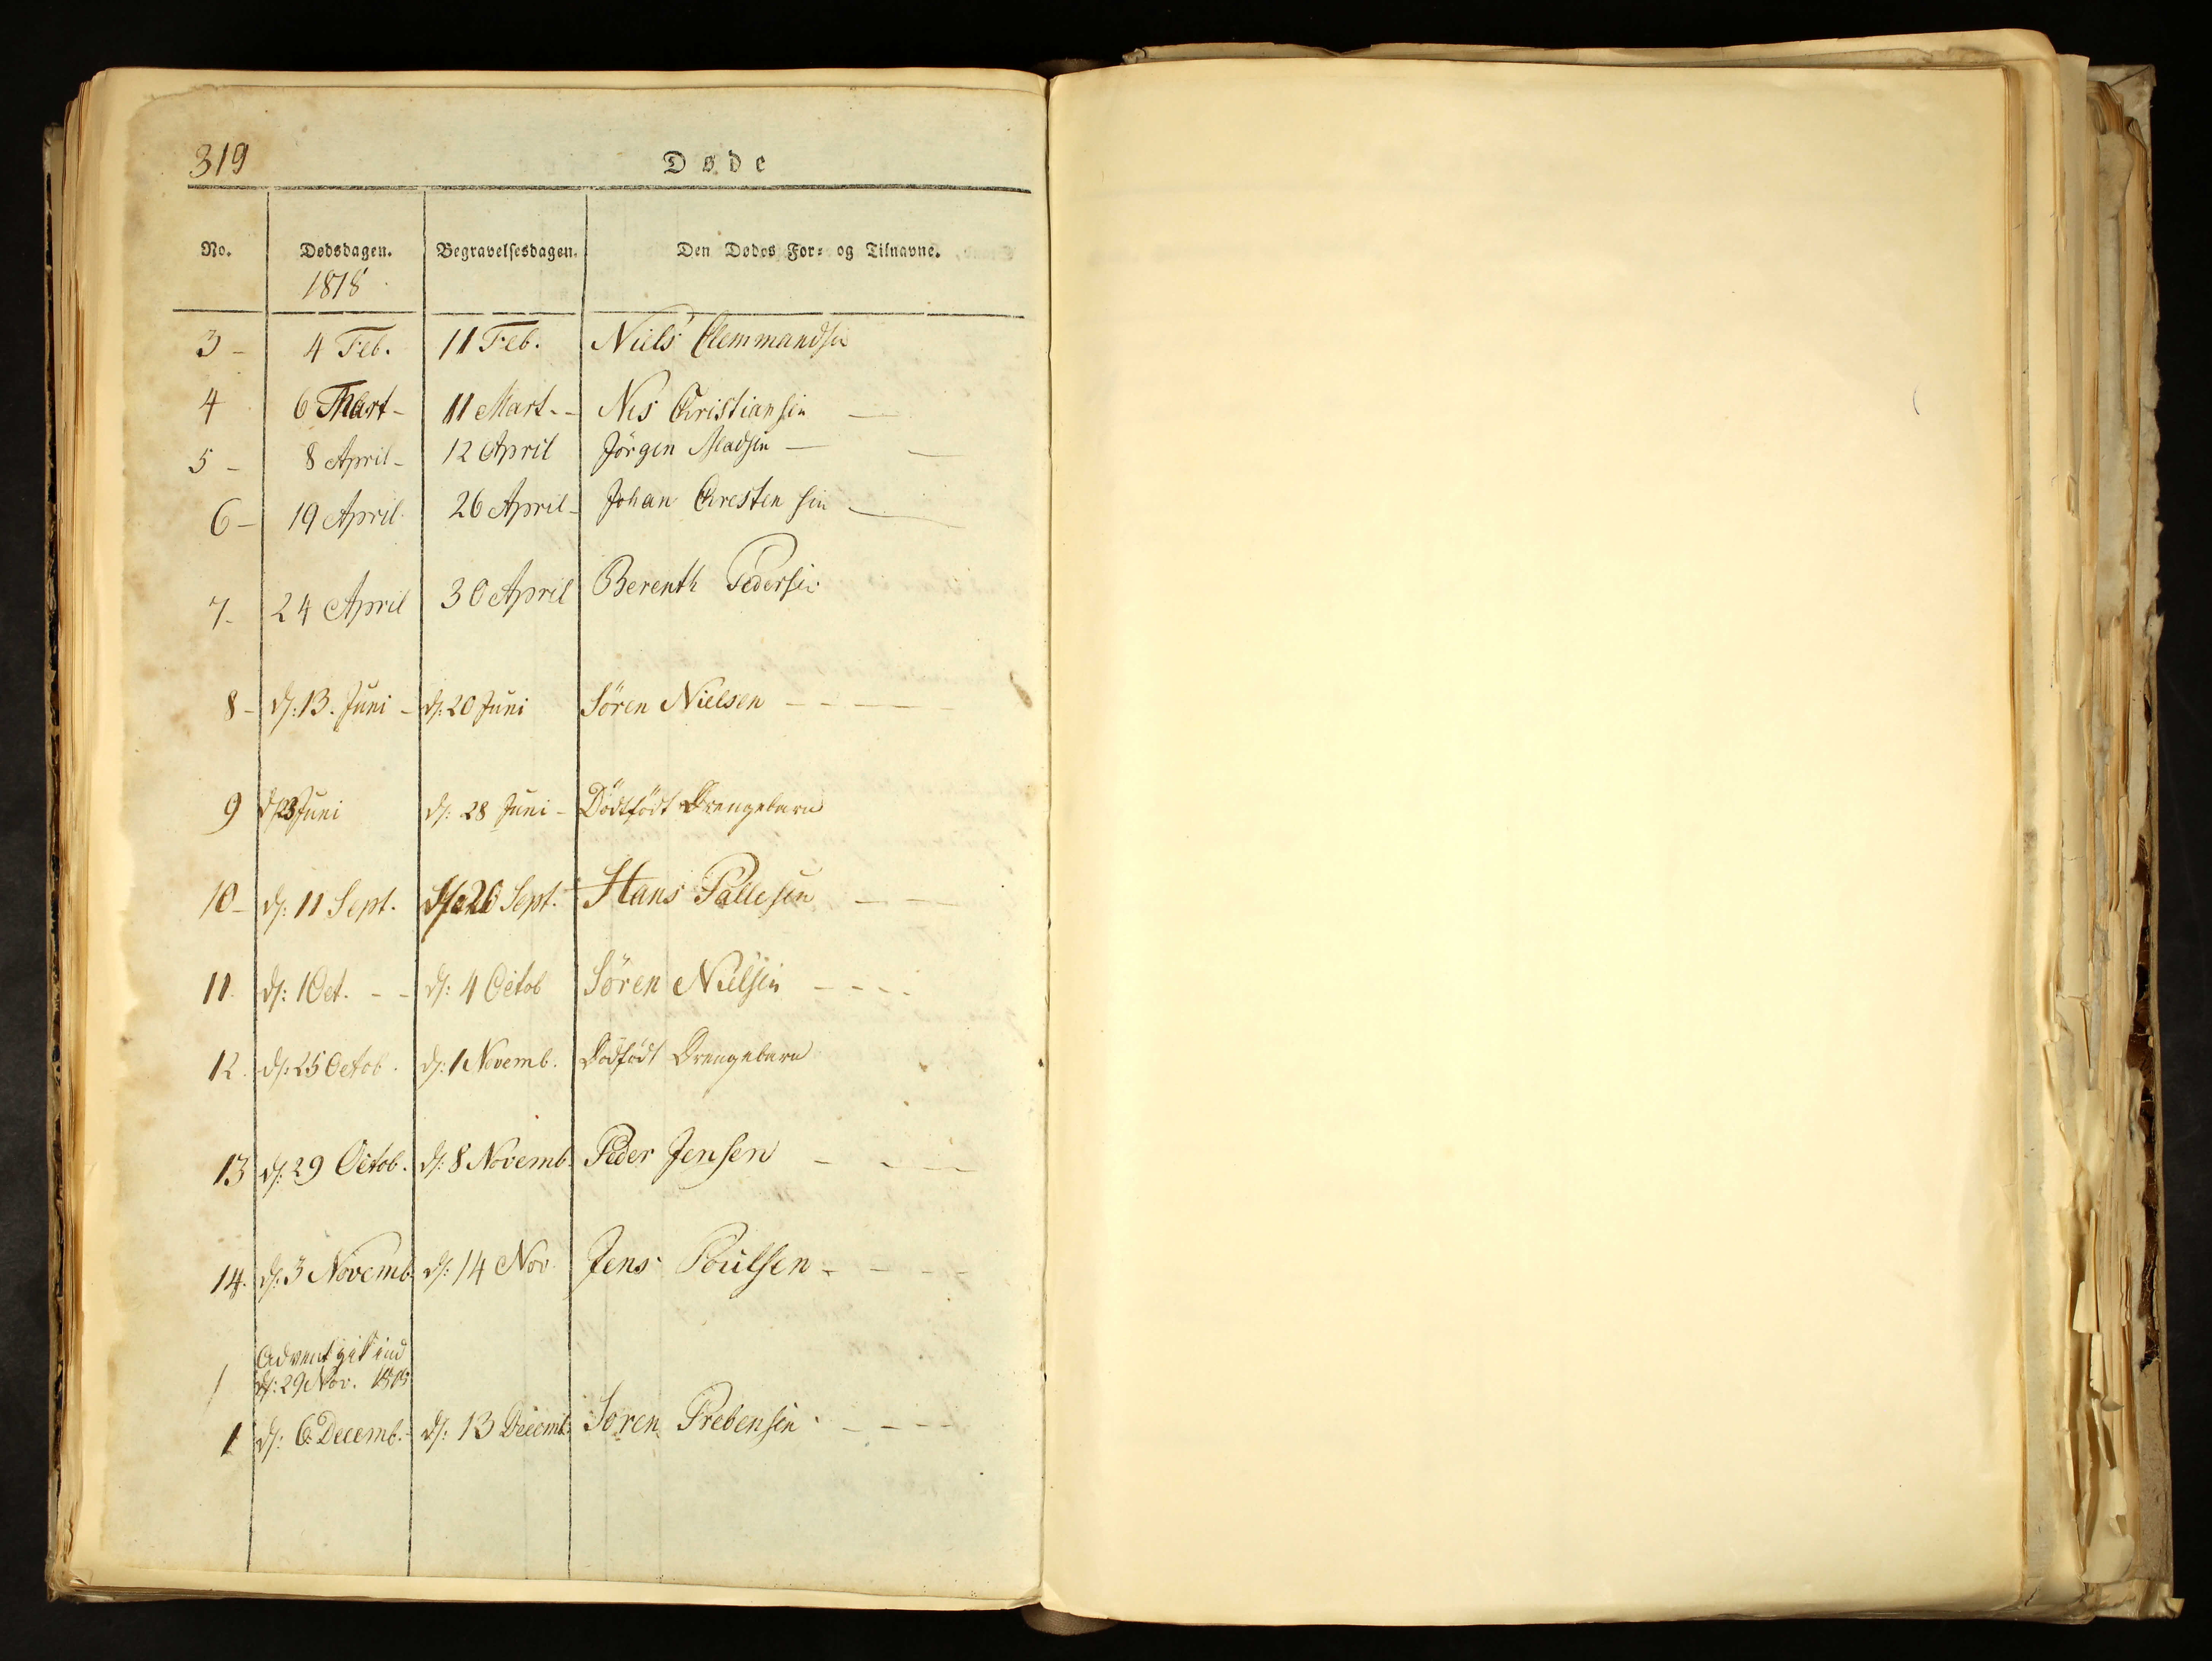 319
Døde
No. Dødsdagen. Begravelsesdagen. Den Dødes For- og Tilnavne.
1818
3 - 4 Feb. 11 Feb. Niels Clemmandsen
4 6 Mart - 11 Mart - - Nis Christiansen —
5 - 8 April - 12 April Jörgen Madsen —
6 - 19 April 26 April - Johan Chresten sen —
7 - 24 April 30 April Berenth Pedersen
8 - d: 13. Juni - d: 20 Juni Sören Nielsen - - - -
9 d: 23 Juni d: 28 Juni - Dödfödt Drengebarn
10 - d: 11 Sept. d: 20 Sept. - Hans Pallesen - -
11 d: 1 Oct. - - d: 4 Octob Sören Nielsen - - - -
12. d: 25 Octob. d: 1 Novemb. Dödfödt Drengebarn
13 d: 29 Octob. d: 8 Novemb. Peder Jensen - - -
14. d: 3 Novemb. d: 14 Nov. Jens Poulsen - - - -
Advent gik ind
d: 29 Nov. 1818
1 d: 6 Decemb. - d: 13 Decemb: Soren Prebensen - - -